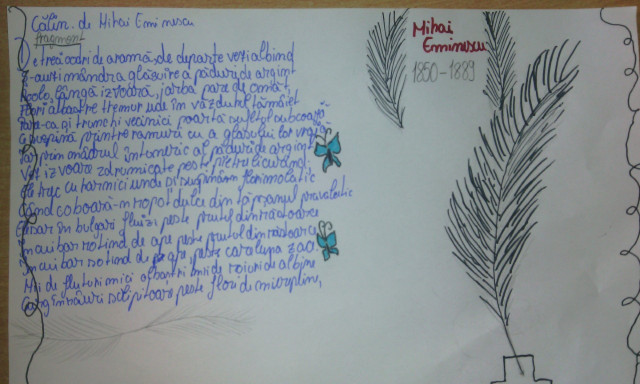 Călin. de Mihai Eminescu
fragment
De treci codri de aramă, de departe vezi albind
Ș-auzi mândra glăsuire a pădurii de argint
Acolo, lângă izvoară, iarba pare de omăt,
Flori albastre tremur ude în văzduhul tămâiet
Pare-că și trunchii vecinici poartă suflet sub coajă
Ce suspină printre ramuri cu a glasului lor vrajă
Iar prin mândrul întuneric al pădurii de argint
Vezi izvoare zdrumicate peste pietre licurind,
Ele trec cu harnici unde și suspină-n flori molatic
Când coboară-n ropot dulce din tăpșanul prăvalatic
Ele sar în bulgări fluizi peste prundul din răstoace
În cuibar rotind de ape peste prundul din răstoace
În cuibar rotind de ape, peste care luna zace
Mii de fluturi mici albaștri mii de roiuri de albine
Curg în râuri sclipitoare peste flori de miere pline,
Mihai
Eminescu
1850-1889